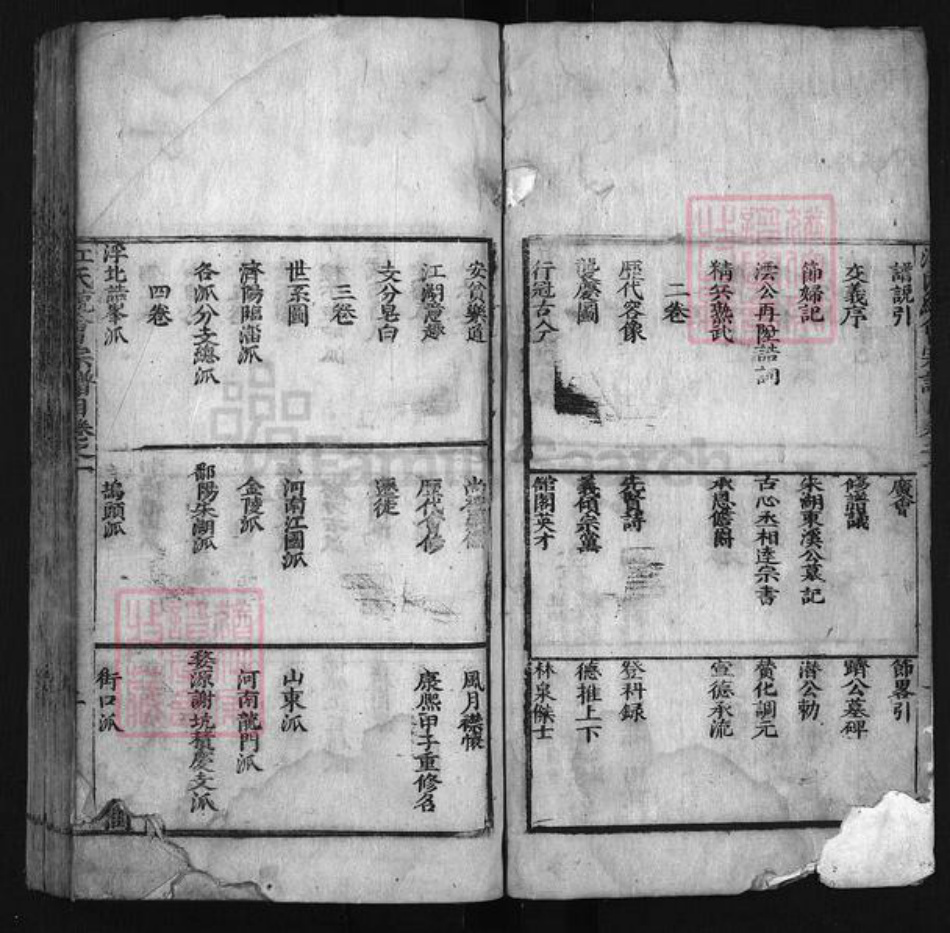 譜說引
交義序
節婦記
澐公再陞誥詞
精兵熟武
二卷
歷代容像
襲慶圖
行冠古人
廣會
修譜議
朱湖東溪公墓記
古心丞相達宗書
承恩儋爵
先賢詩
義碩宗黨
館閣英才
節畧引
躋公墓碑
潛公勅
贊化調元
宣德承流
登科録
德推上下
林泉傑士
安貧樂道
江湖
支分皂白
三卷
世系圖
濟陽臨淄派
各派分支總派
四卷
浮北誥峯派
歷代會修
遷徙
河南江國派
金陵派
鄱陽朱湖派
塢頭派
風月襟懷
康熙甲子重修名
山東派
河南龍門派
婺源謝坑積慶支派
街口派